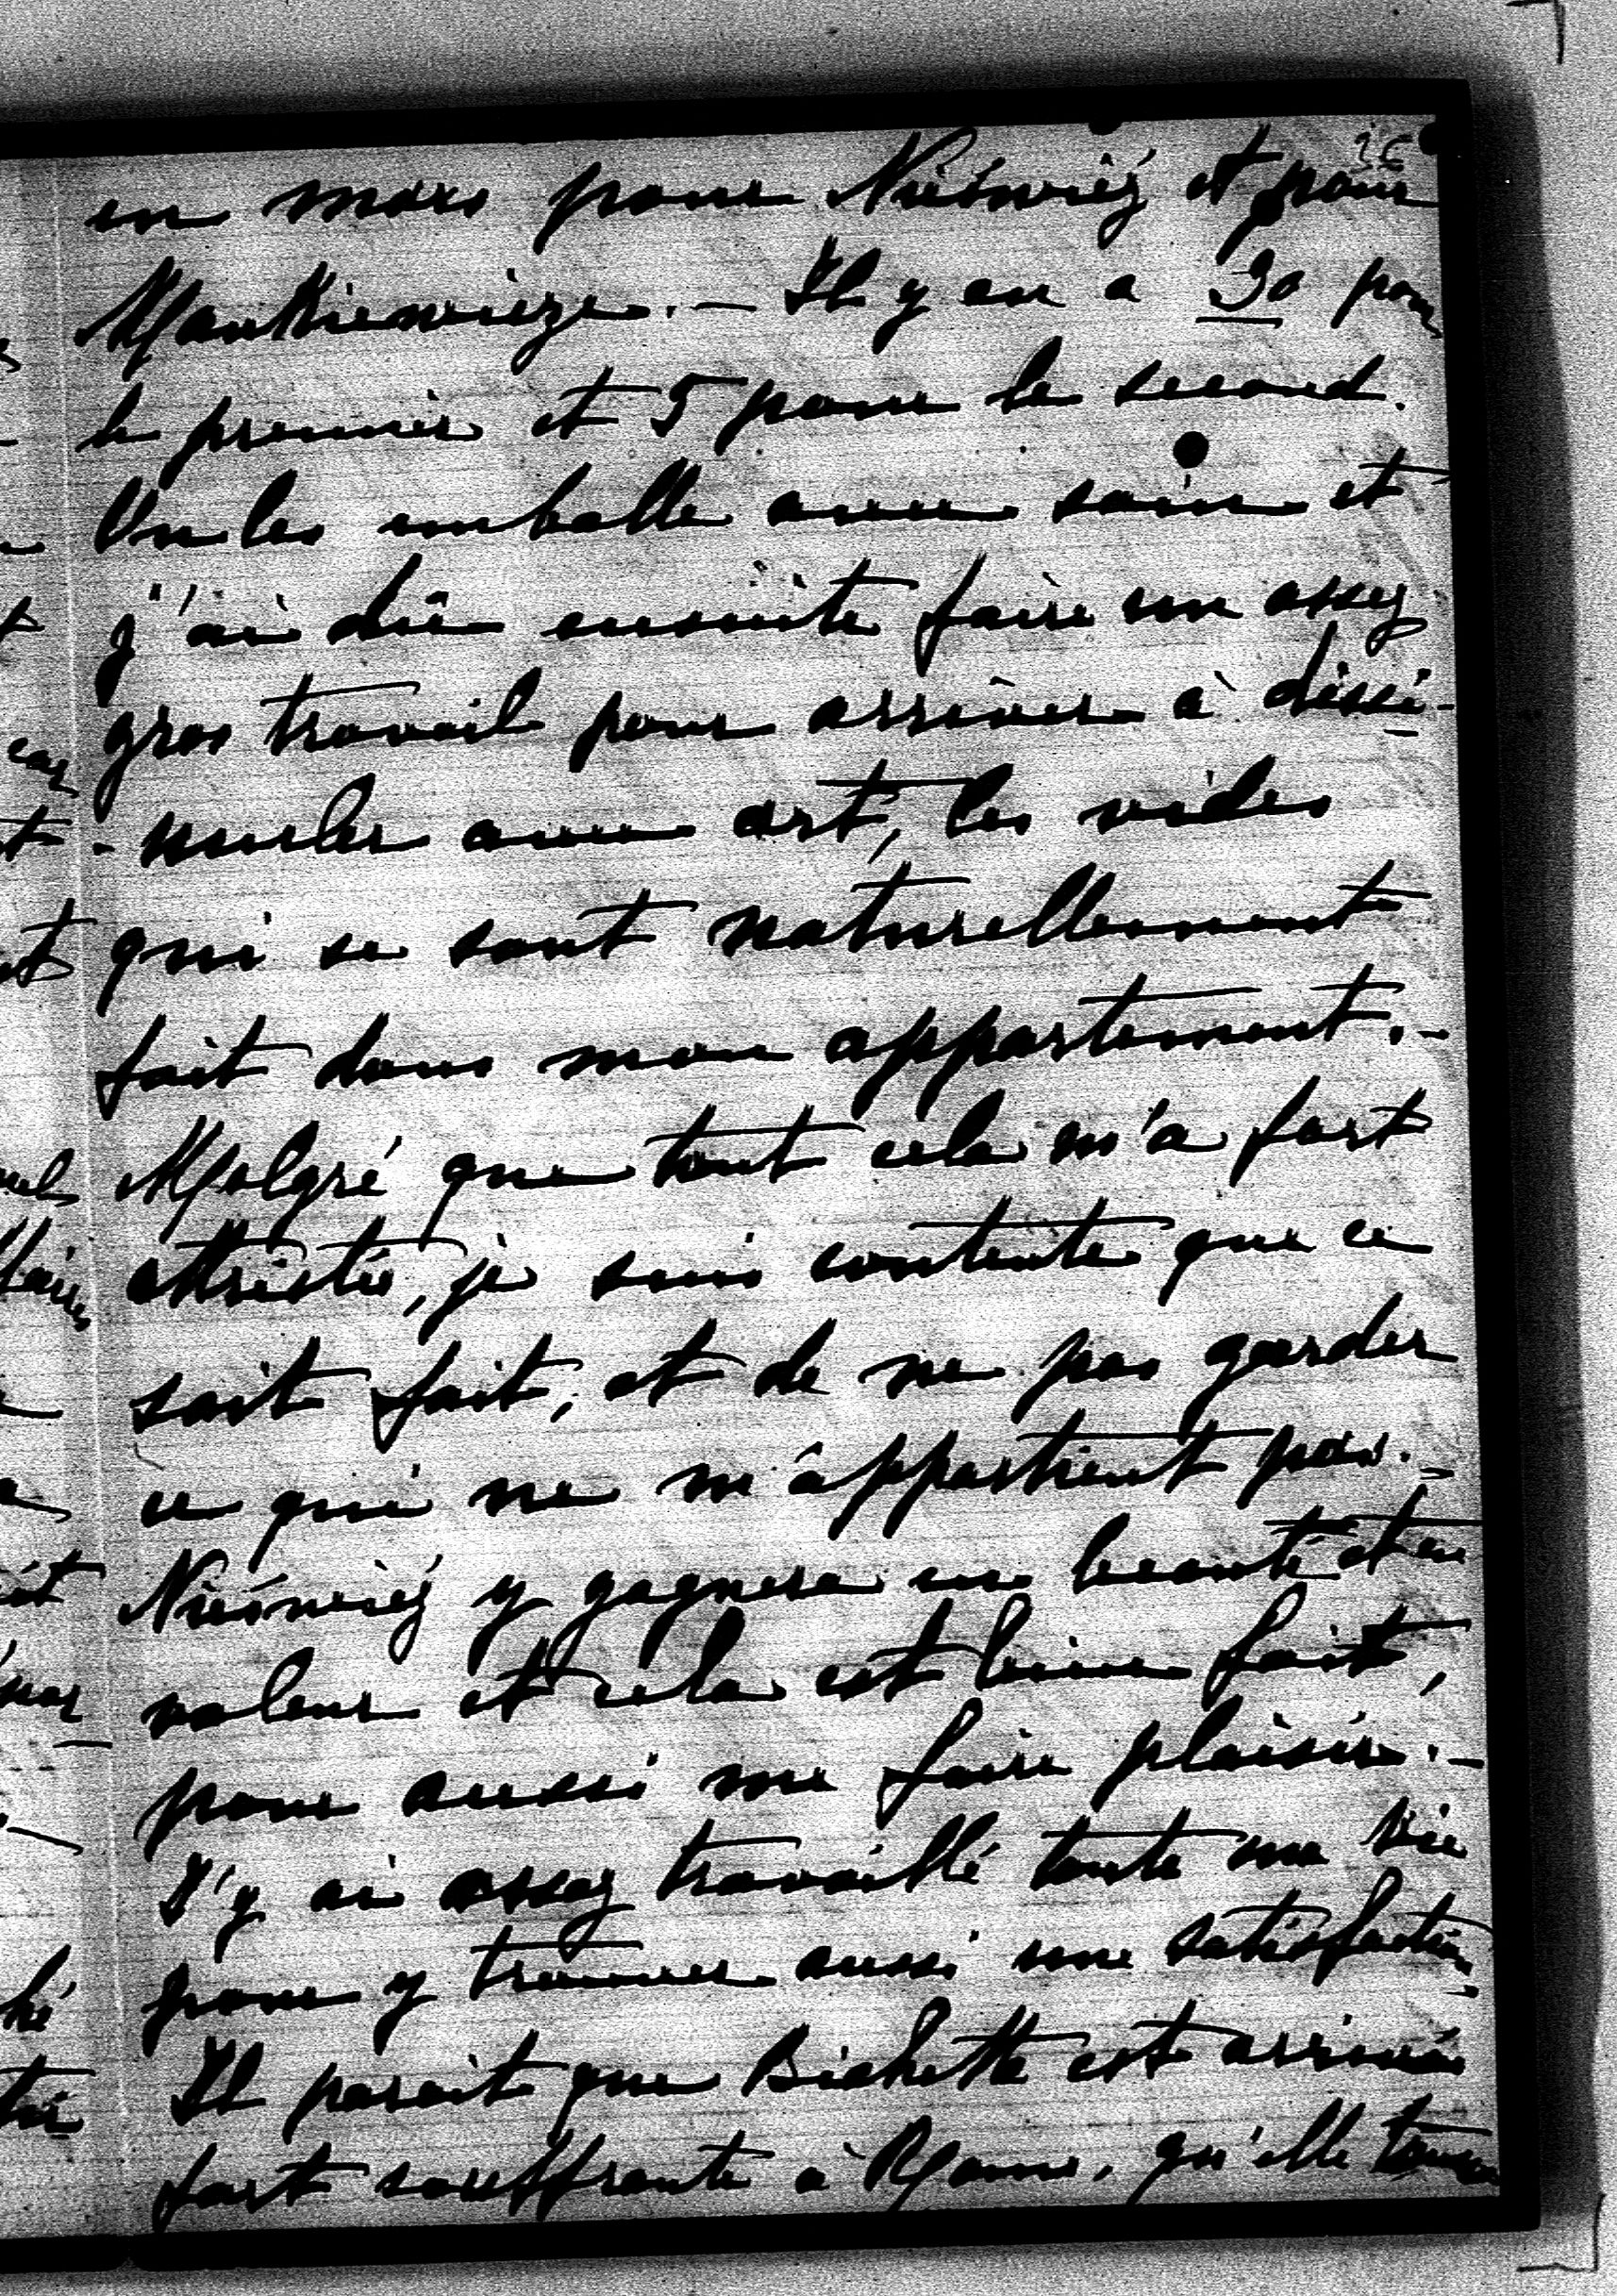 36
en mars pour Nieśwież et pour
Mankiewicze. — Il y en a 30 pour
le premier et 5 pour le second.
On les emballe avec soin et
j'ai dû ensuite faire un assez
gros travail pour arriver à dissi-
-muler avec art, les vides
qui se sont naturellement
fait dans mon appartement. -
Malgré que tout cela m'a fort
attristée, je suis contente que ce
soit fait, et de ne pas garder
ce qui ne m'appartient pas. -
Nieśwież y gagnera en beauté et en
valeur et cela est bien fait,
pour aussi me faire plaisir. -
J'y ai assez travaillé toute ma vie
pour y trouver aussi une satisfaction
Il parait que Bichette est arrivée
fort souffrante à Rome, qu'elle